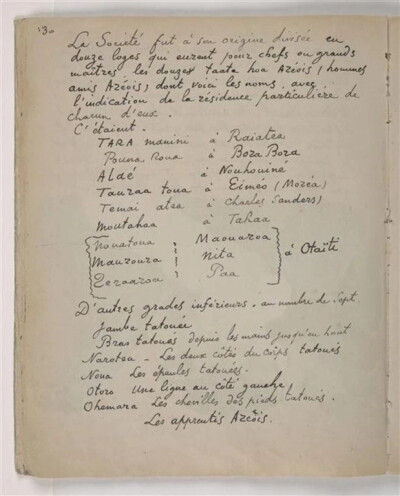 130
La Société fut à son origine divisée en
douze loges qui eurent pour chefs ou grands
maîtres, les douzes taata hoa Aréois (hommes
amis Aréois) dont voici les noms, avec
l'indication de la résidence particulière de
chacun d'eux.
C'étaient.
TARA manini à Raiatea
Bouna Roua à Bora Bora
Aldé à Nouhouiné
Tauraa toua à Eiméo (Moréa)
Temai atea à Charles Sanders)
Moutahaa à Tahaa
Nouatoua Maouaroa
Mauroura Nita à Otaïti
Zeraaroa Paa
D'autres grades inférieurs. au nombre de Sept
Jambe tatouée
Bras tatoués depuis les mains jusqu'en haut
Narotea - Les deux côtés du corps tatoués
Noua Les épaules tatouées.
Otoro Une ligne au côté gauche
Ohemara Les chevilles des pieds tatoués.
Les apprentis Aréois.